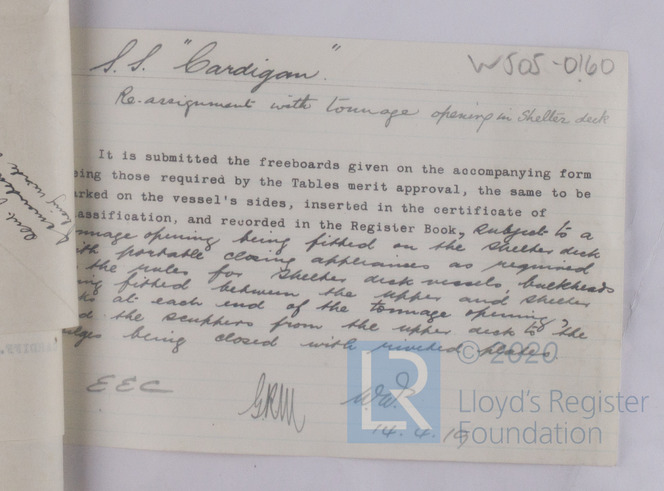 S.S. "Cardigan".
W505-0160
Re-assignment with tonnage opening in Shelter deck
It is submitted the freeboards given on the accompanying form
ing those required by the Tables merit approval, the same to be
arked on the vessel's sides, inserted in the certificate of
assification, and recorded in the Register Book, subject to a
nnage opening being fitted on the shelter deck
th portable closing appliances as required
the rules for shelter deck vessels, bulkheads
ng fitted between the upper and shelter
ks at each end of the tonnage opening, the
d the scuppers from the upper deck to the
ges being closed with riveted plates.
EEC
GRM
W.W.
14.4.19
being made
ARDIFF.
LR
© 2020
Lloyd's Register
Foundation